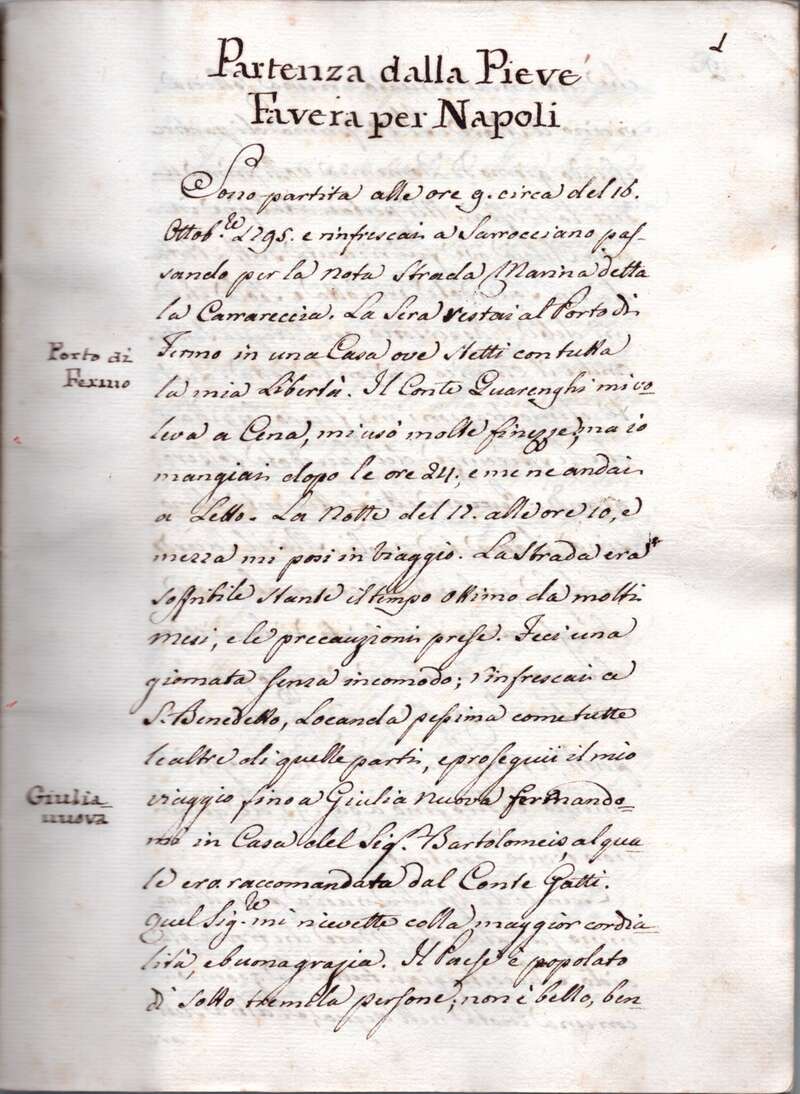 1
Partenza dalla Pieve
Favera per Napoli
Sono partita alle ore 9. circa del 16.
Ottob.re 1795. e rinfrescai a Sarrocciano pas-
sando per la nota Strada Marina detta
la Carrareccia. La Sera restai al Porto di
Porto di
Fermo
Fermo in una Casa ove stetti con tutta
la mia Libertà. Il Conte Quarenghi mi vo-
leva a Cena, mi usò molte finezze, ma io
mangiai dopo le ore 24. e me ne andai
a Letto. La Notte del 17. alle ore 10, e
mezza mi posi in Viaggio. La Strada era
soffribile stante il tempo ottimo da molti
mesi, e le precauzioni prese. Feci una
giornata senza incomodo; rinfrescai a
S. Benedetto, Locanda pessima come tutte
le altre di quelle parti, e proseguii il mio
Giulia
nuova
viaggio fino a Giulia nuova fermando-
mi in Casa del Sig.r Bartolomeis, al qua-
le era raccomandata dal Conte Gatti.
Quel Sig.re mi ricevette colla maggior cordia-
lità, e buona grazia. Il Paese è popolato
di sotto tremila persone; non è bello, ben